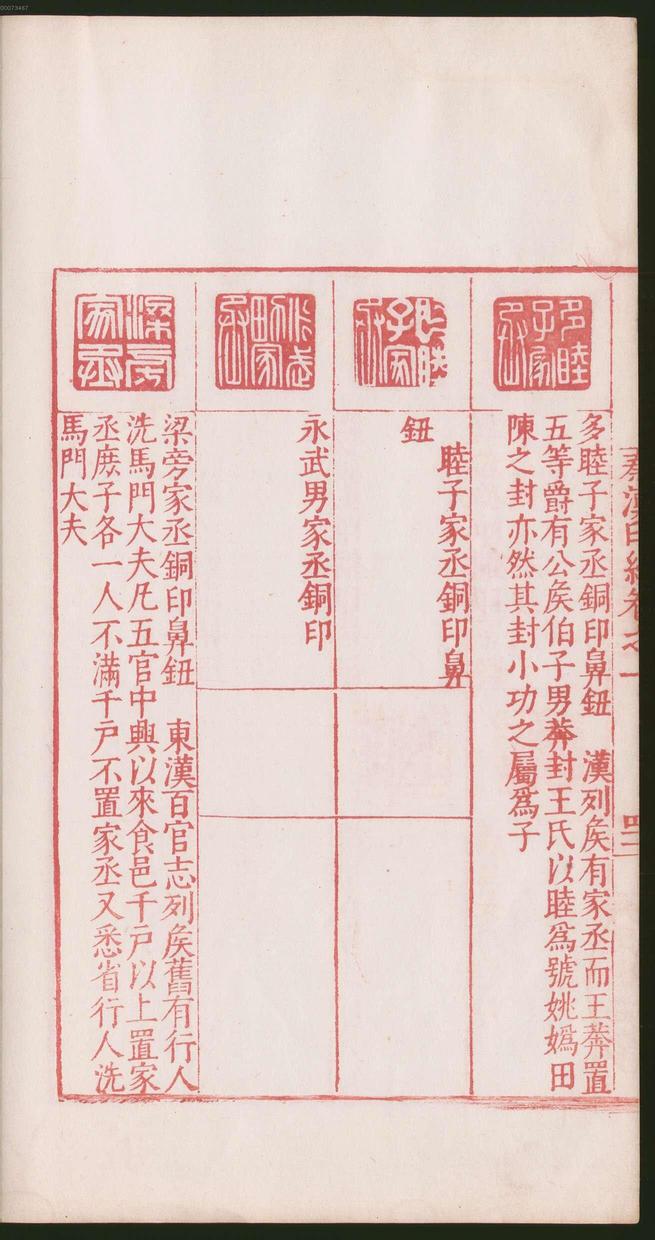 00073467
多睦子家丞
多睦子家丞銅印鼻鈕　漢列矦有家丞而王莽置
五等爵有公矦伯子男莽封王氏以睦爲號姚嬀田
陳之封亦然其封小功之屬爲子
睦子家丞銅印鼻
鈕
永武男家丞
永武男家丞銅印
梁旁家丞銅印鼻鈕　東漢百官志列矦舊有行人
洗馬門大夫凡五官中興以來食邑千戸以上置家
丞庶子各一人不滿千戸不置家丞又悉省行人洗
馬門大夫